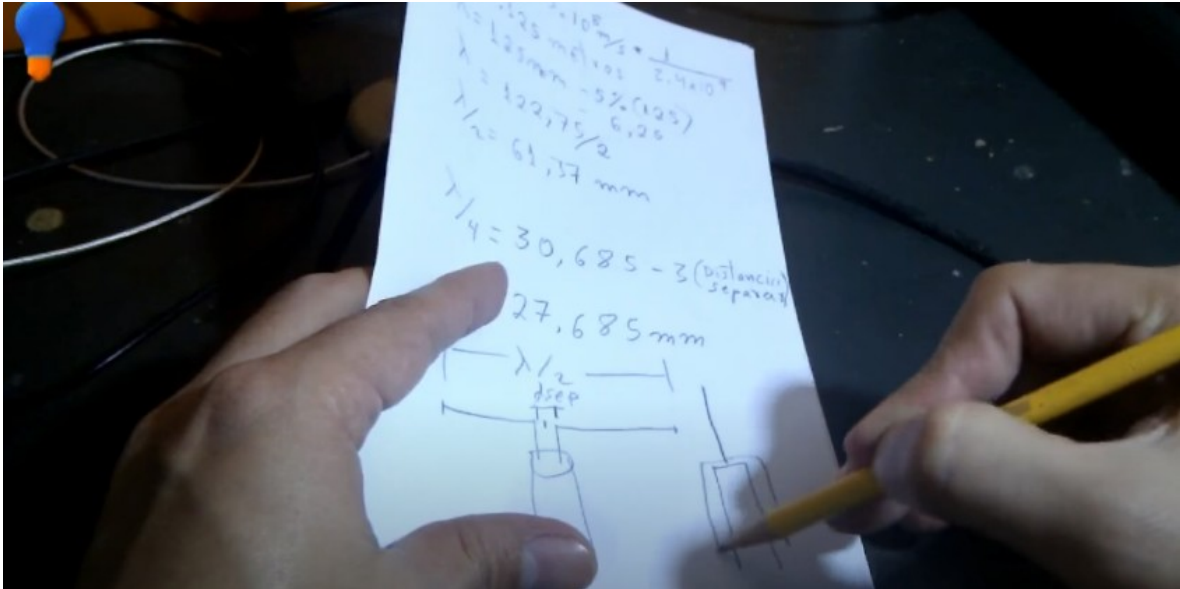 ×10⁸ m/s • 1/2.4×10⁹
λ = 125 metros
λ = 125mm - 5% (125)
6,25
= 122,75/2
λ/2 = 61,37 mm
λ/4 = 30,685 - 3 (Distancia
separas)
27,685 mm
λ/2
dsep